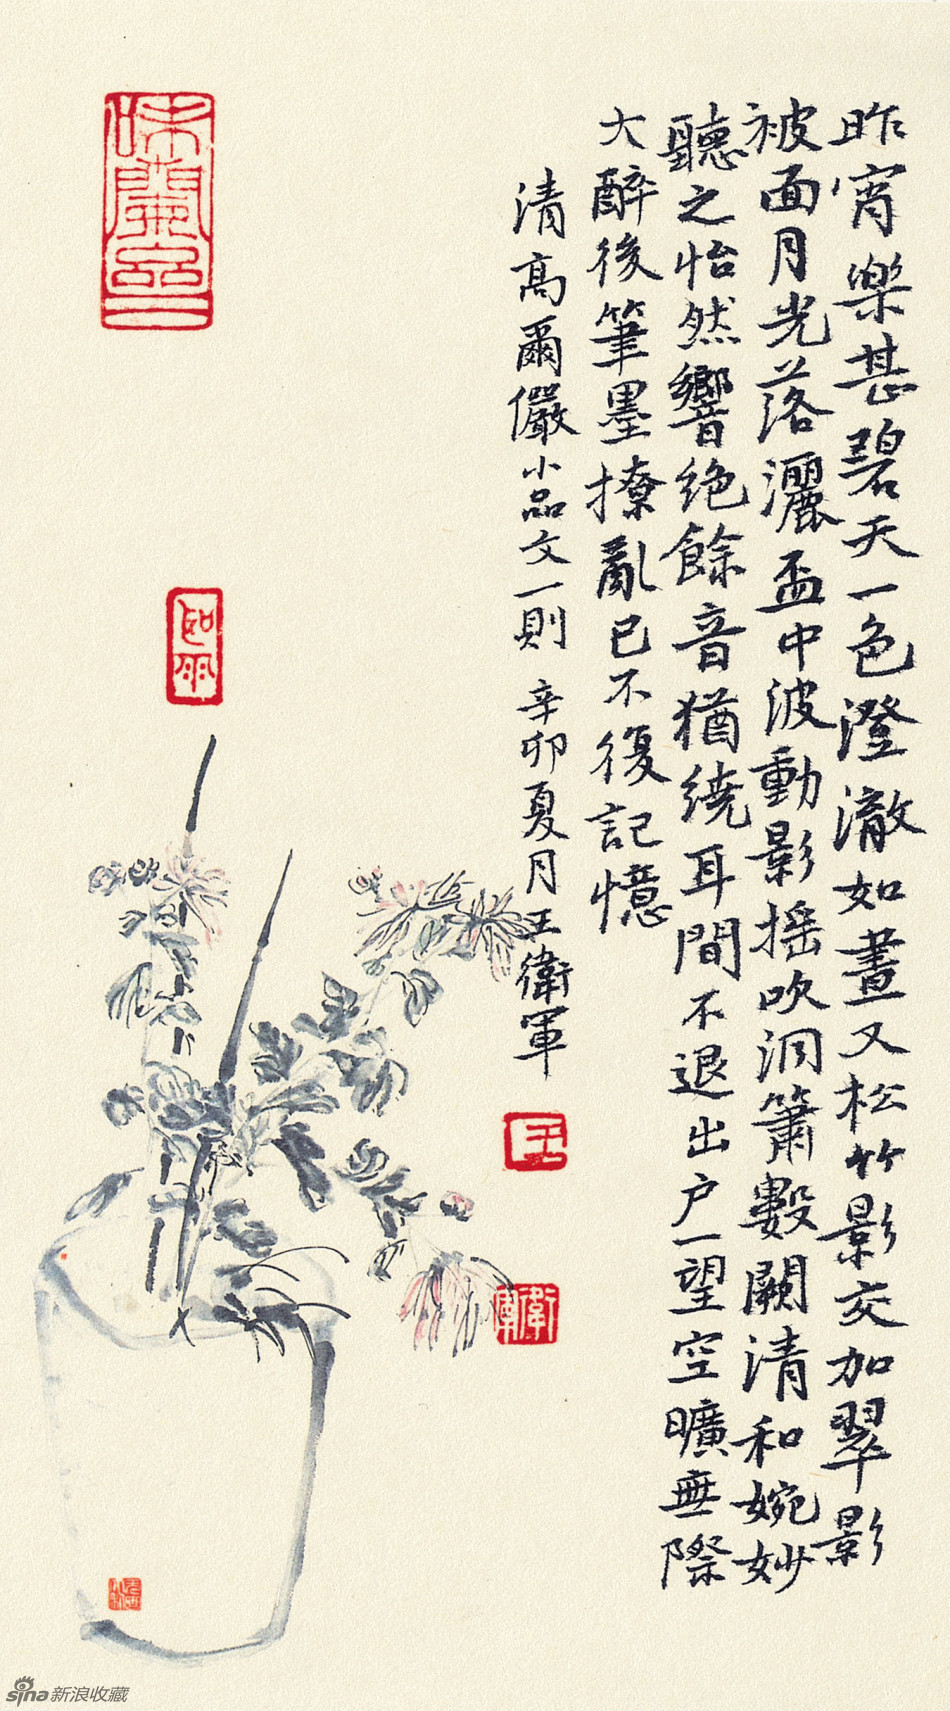 昨宵樂甚碧天一色澄澈如晝又松竹影交加翠影
被面月光落灑盃中波動影搖吹洞簫數闋清和婉妙
聽之怡然響絶餘音猶繞耳間不退出户一望空曠無際
大醉後筆墨撩亂已不復記憶
清高爾儼小品文一則 辛卯夏月王衛軍
王
衛軍
sina新浪收藏